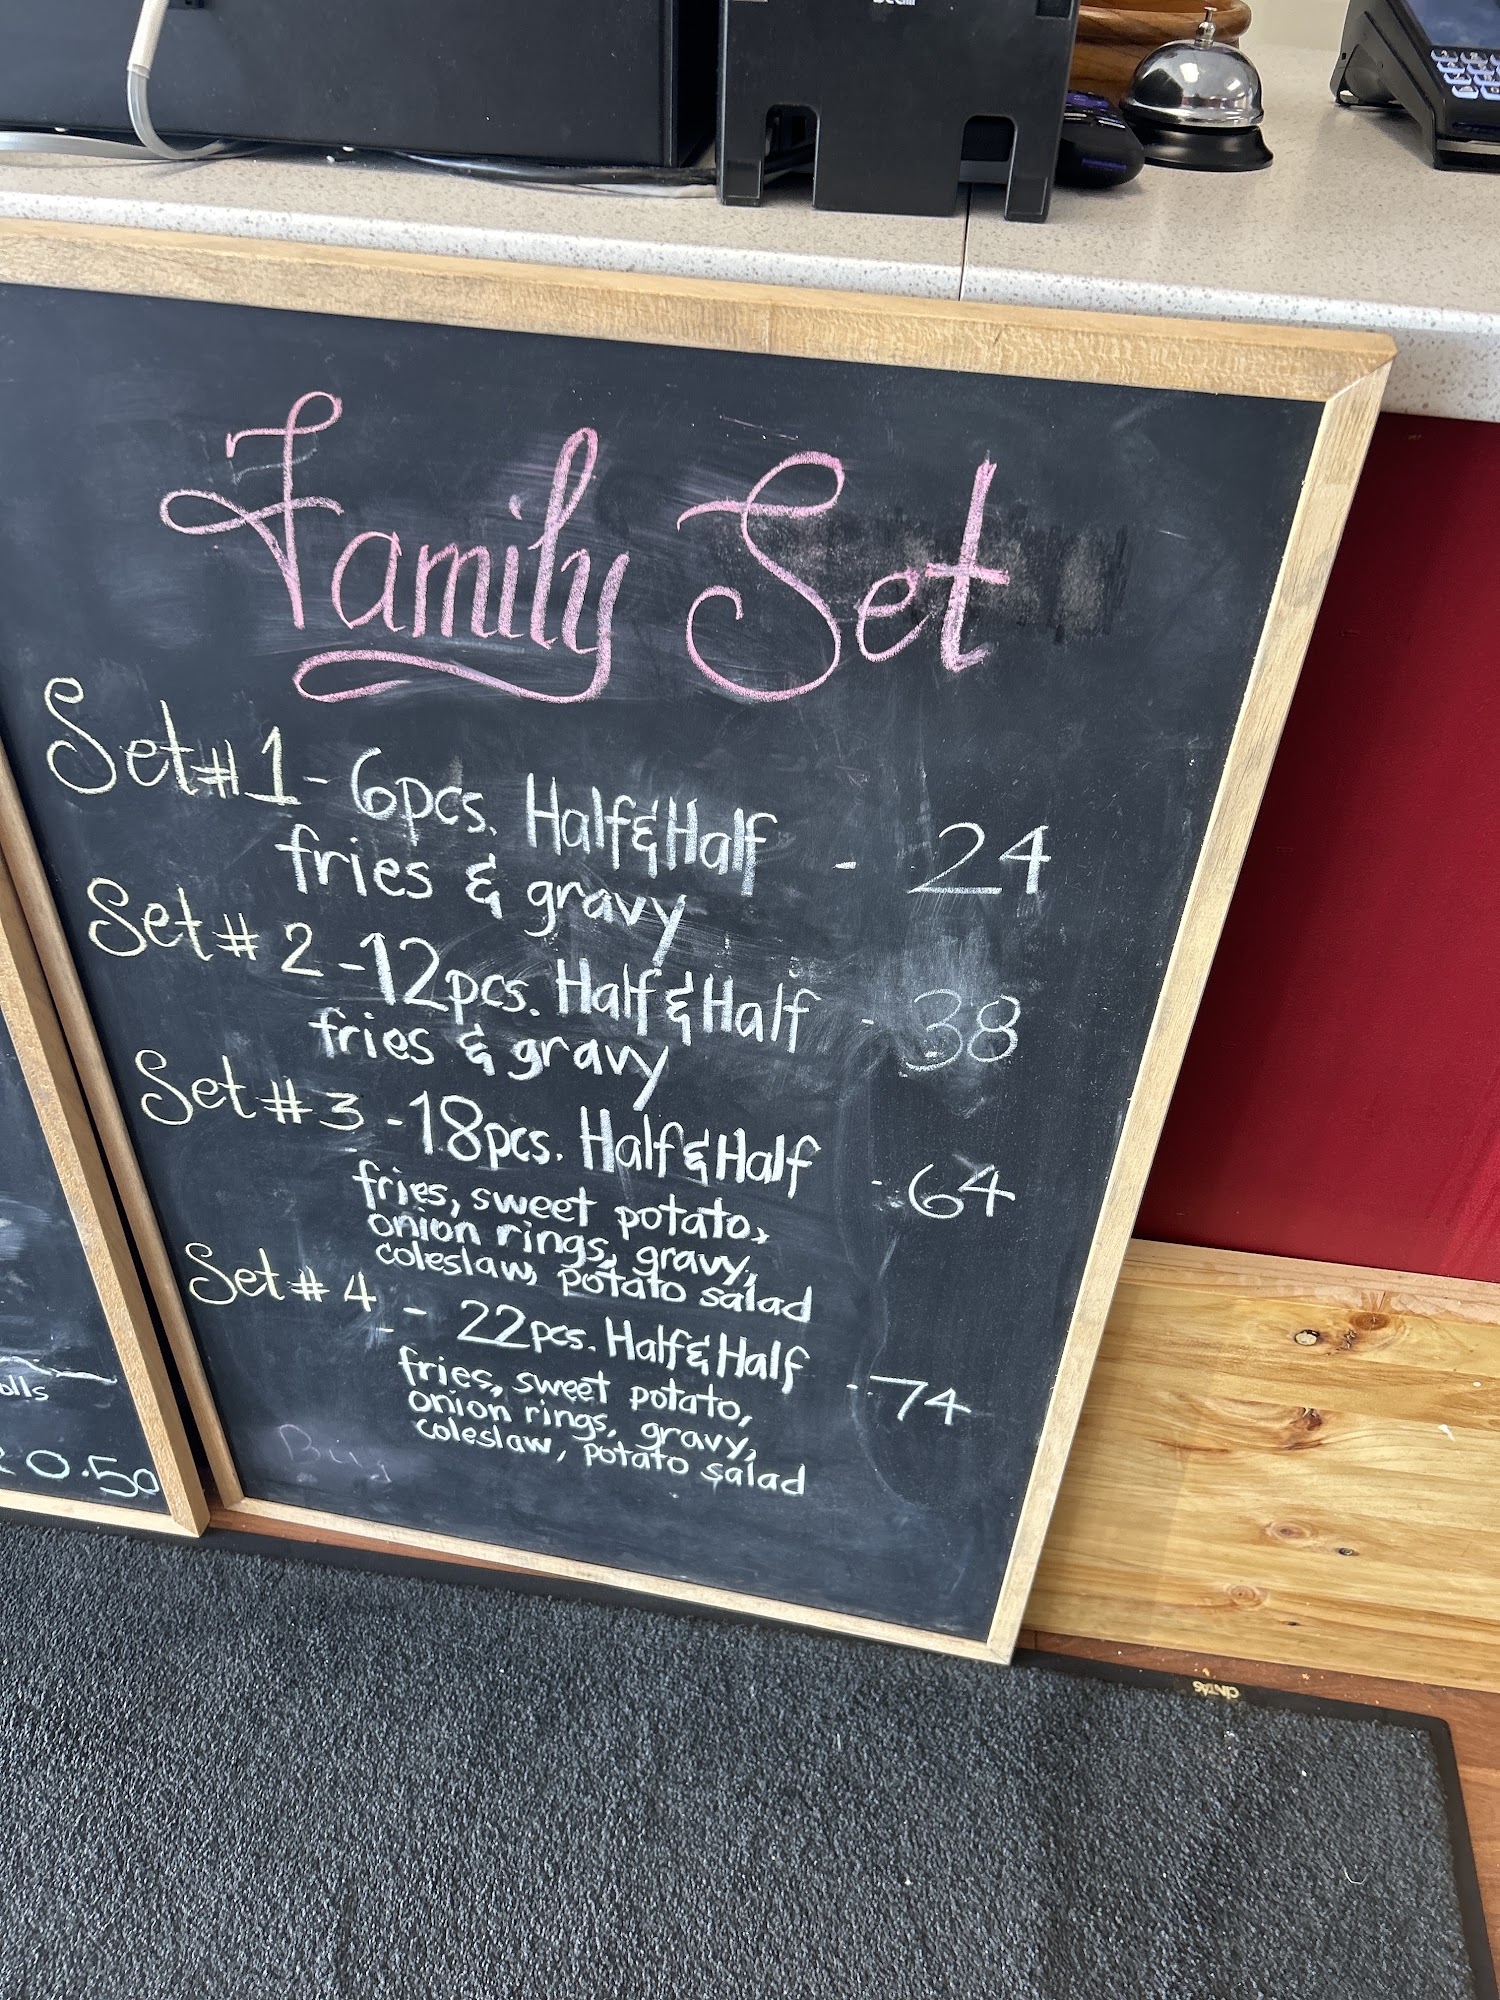 Family Set
Set #1 - 6pcs. Half & Half - 24
fries & gravy
Set # 2 - 12pcs. Half & Half - 38
fries & gravy
Set # 3 - 18pcs. Half & Half - 64
fries, sweet potato,
onion rings, gravy,
coleslaw, potato salad
Set # 4 - 22pcs. Half & Half - 74
fries, sweet potato,
onion rings, gravy,
coleslaw, potato salad
0.50
CINTAS